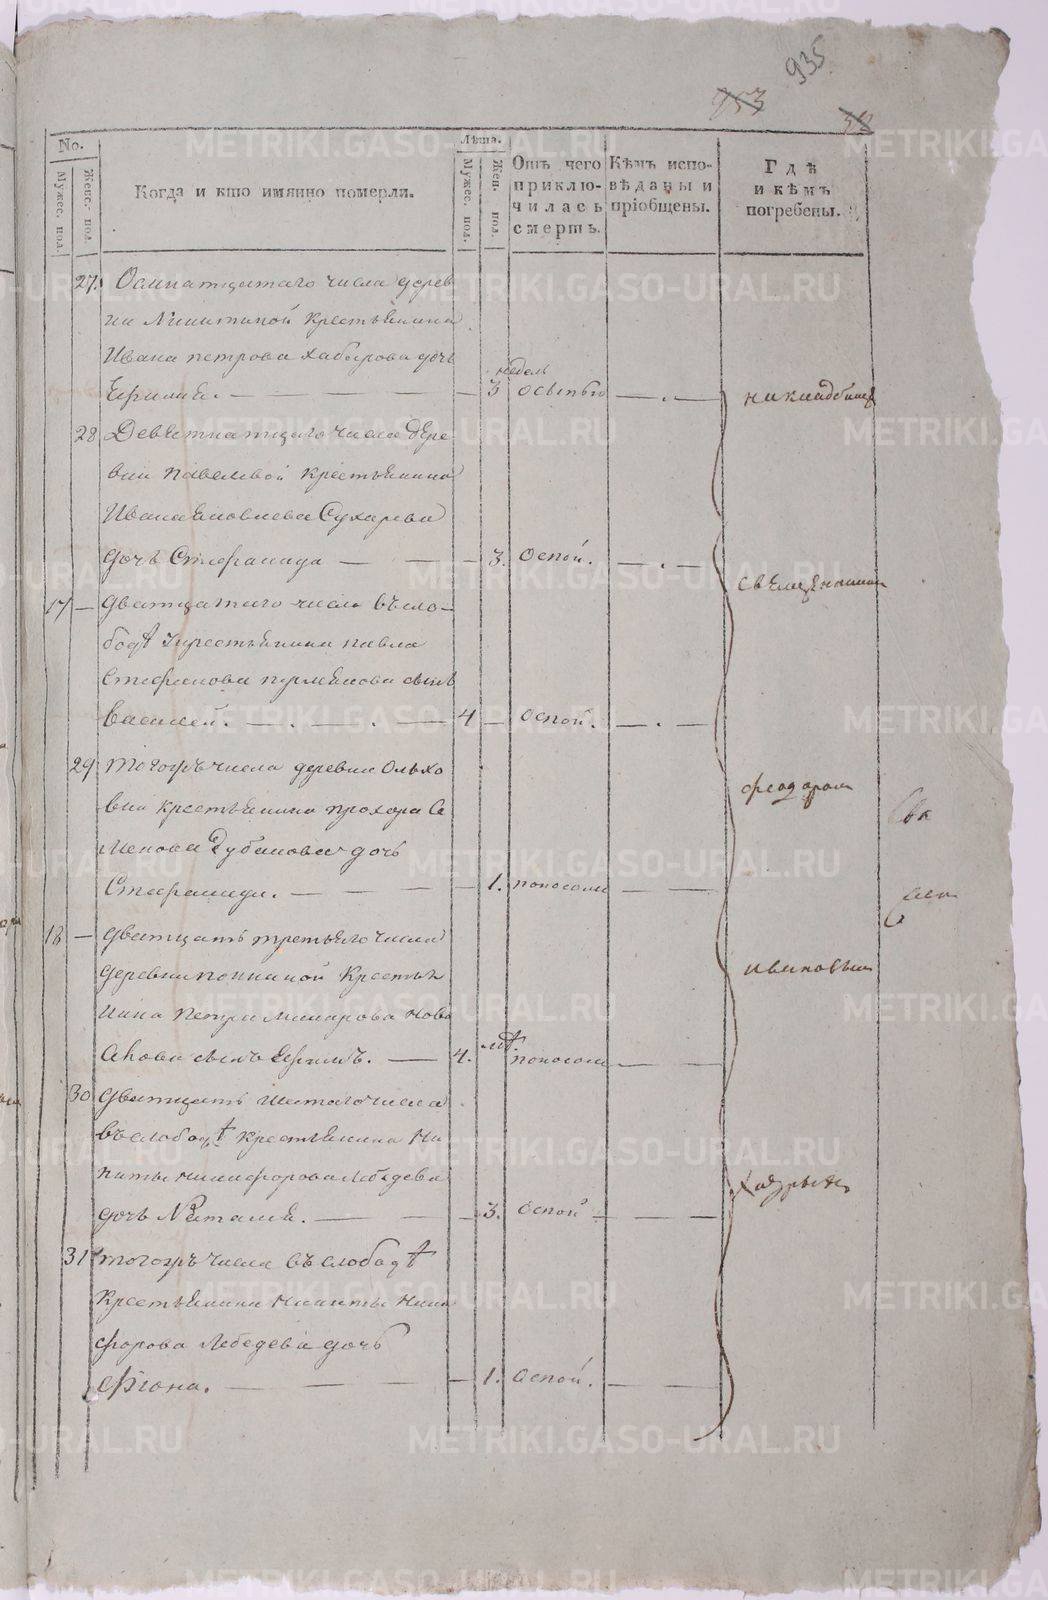 935
953
58
No.
Мужес. пол.
Женс. пол.
Когда и кто имянно померли.
Лѣта.
Мужес. пол.
Жен. пол.
Отъ чего
приклю-
чилась
смерть.
Кѣмъ испо-
вѣданы и
пріобщены.
Гдѣ
и кѣмъ
погребены.
27. Осмнатцатаго числа дерев
ни Никитиной крестьянина
Ивана петрова Хабарова дочь
недель
3 осьпою
на кладбище
28 Девятнатцаго числа дере
вни павловой крестьянина
Ивана Яковлева Сухарева
дочь Стефанида 3. оспой.
священником
17 дватцатого числа въ сло-
бодѣ крестьянина павла
Стефанова сынъ
василей. 4 оспой.
29 того жъ числа деревни Ольхо
вки крестьянина прохора Се
менова Дубанова дочь
феодором
Стефанида. 1. поносом
18 двадцать третьяго числа
деревни крестья
нина петра Макарова Ново
ивановым
сынъ Ефимъ. 4. лѣт. поносом
30 двадцать шестаго числа
въ слободѣ крестьянина Ни
киты никифорова Лебедева
дочь Наталия. 3. оспой
31 того жъ числа въ слободѣ
крестьянина никиты ники
форова Лебедева дочь
Фиона. 1. оспой.
METRIKI.GASO-URAL.RU